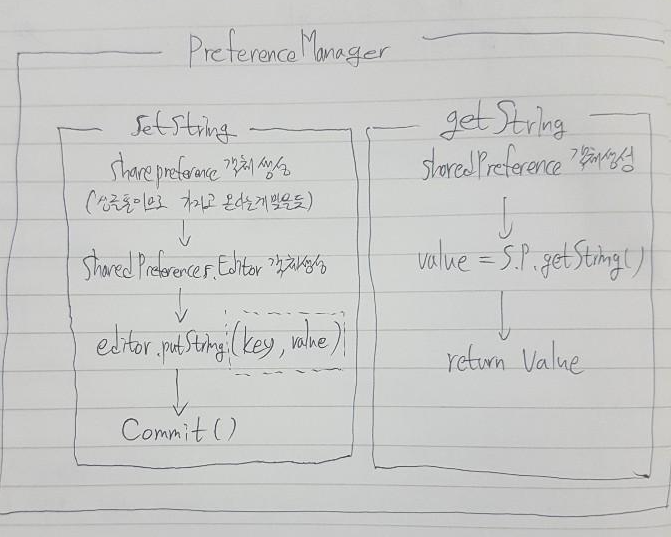 PreferenceManager
SetString
Sharepreference 객체생성
(싱글톤이므로 가지고 온다는게 맞을듯)
↓
SharedPreferences.Editor 객체생성
↓
editor.putString(key, value)
↓
Commit()
getString
SharedPreference 객체생성
↓
value = S.P.getString()
↓
return Value